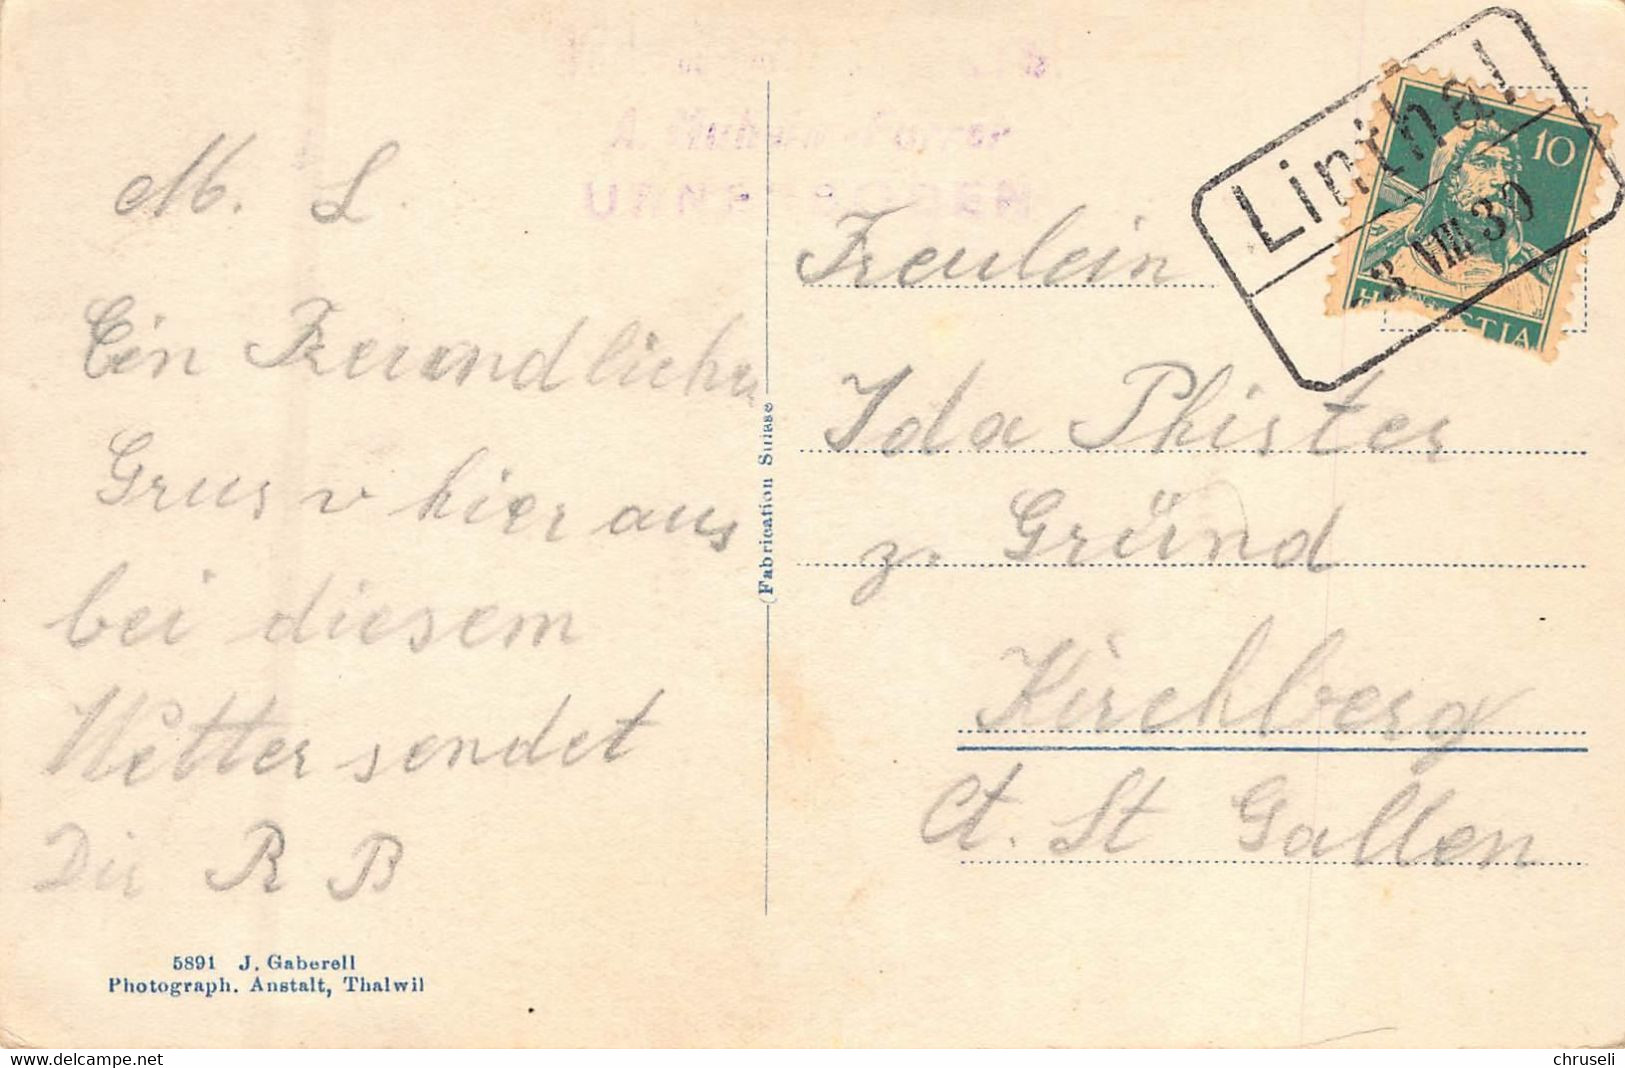 M. L.
Ein Freundlicher
Grus v hier aus
bei diesem
Wetter sendet
Dir R B
5891 J. Gaberell
Photograph. Anstalt, Thalwil
(Fabrication Suisse
Freulein
Ida Phister
z. Gründ
Kirchberg
Ct. St Gallen
Linthal
-3 VIII. 30
10
HELVETIA
www.delcampe.net
chruseli